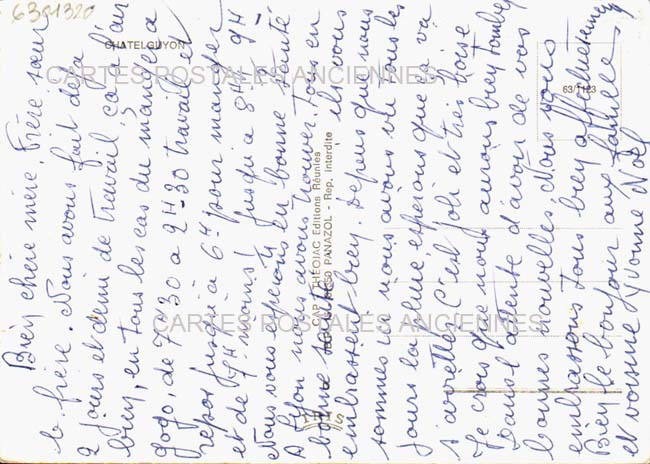 6301320
CHATELGUYON
CARTES POSTALES ANCIENNES
63/1123
THEOJAC Editions Réunies
PANAZOL - Rep. interdite
IRIS
CARTES POSTALES ANCIENNES
Brey chère mère. Frère sœur
le frère. Nous avons fait déjà
2 jours et demi de travail ça à l'air
brey, en tous les cas du manger a
gogo, de 7H30 a 9H30 travail et
repos jusqu'à 6H pour manger
et de 7H moins! jusqu'a 8H 9H
Nous vous espérons en bonne santé
A Lyon nous avons trouver Tous en
bonne santé ils vous
embrassent brey. Depuis que nous
sommes ici nous avons vu tous les
jours la pluie, espérons que ça va
s'arrêter C'est joli et très boisé
Je crois que nous aurons brey tomber
Dans l'attente d'avoir de vos
bonnes nouvelles. Nous vous
embrassons tous brey affectueusement
Brey le bonjour aux famille
et voisine Yvonne Noël